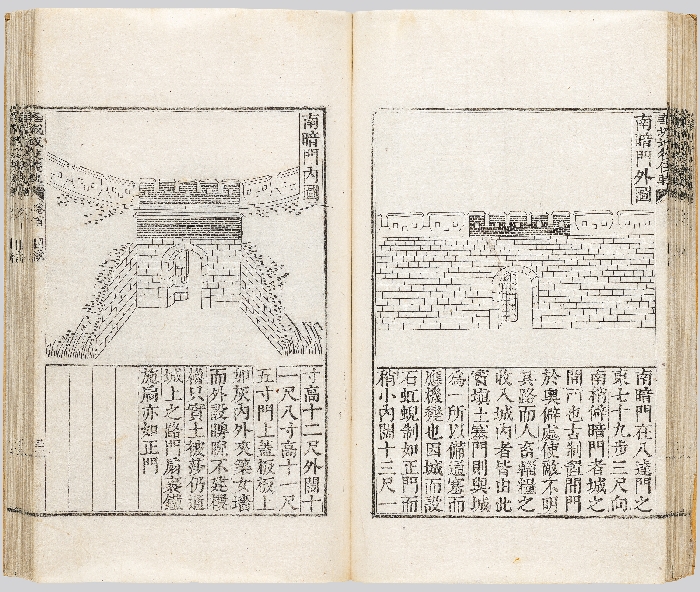 南暗門外圖
南暗門在八達門之
東七十九步三尺向
南稍僻暗門者城之
閒門也古制置閒門
於奧僻處使敵不明
其路而人畜輜糧之
收入城內者皆由此
竇塡土塞門則與城
爲一所以備通塞而
應機變也因城而設
石虹蜺制如正門而
稍小內闊十三尺一
南暗門內圖
寸高十二尺外闊十
一尺八寸高十一尺
五寸門上蓋板板上
卵灰內外夾築女墻
而外設睥睨不建樓
櫓只實土被莎仍通
城上之路門扇裹鐵
施扃亦如正門